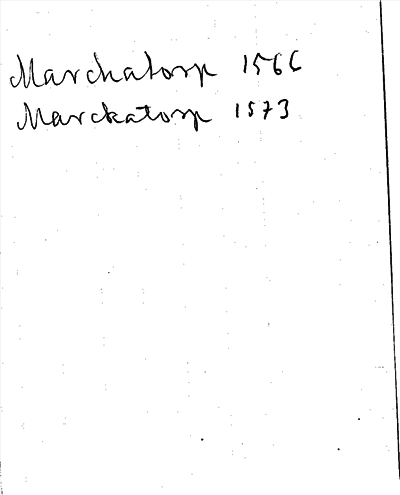 Marchatorp 1566
Marckatorp 1573